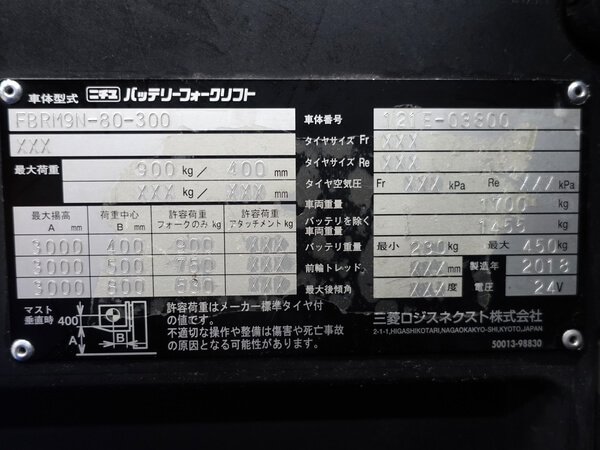 車体型式 ニチユ バッテリーフォークリフト
FBRM9N-80-300
XXX
最大荷重 900 kg / 400 mm
XXX kg / XXX mm
最大揚高 A mm 荷重中心 B mm 許容荷重 フォークのみ kg 許容荷重 アタッチメント kg
3000 400 900 XXX
3000 500 750 XXX
3000 600 XXX
マスト垂直時 400 A B
許容荷重はメーカー標準タイヤ付
の値です。
不適切な操作や整備は傷害や死亡事故
の原因となる可能性があります。
車体番号 121E-03800
タイヤサイズ Fr XXX
タイヤサイズ Re XXX
タイヤ空気圧 Fr XXX kPa Re XXX kPa
車両重量 1700 kg
バッテリを除く車両重量 1455 kg
バッテリ重量 最小 230 kg 最大 450 kg
前輪トレッド XXX mm 製造年 2018
最大後傾角 XXX 度 電圧 24 V
三菱ロジスネクスト株式会社
2-1-1,HIGASHIKOTARI,NAGAOKAKYO-SHI,KYOTO,JAPAN
50013-98830